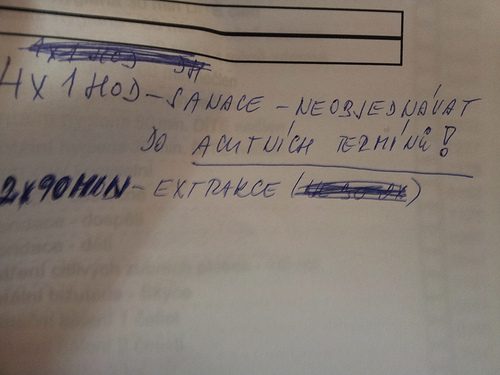 4X1 HOD - SANACE - NEOBJEDNÁVAT
DO ACUTNÍCH TERMÍNŮ!
2X90MIN - EXTRAKCE ( )